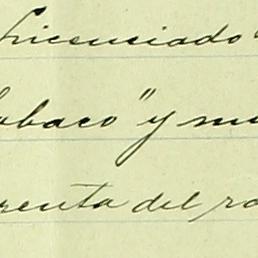 Licenciado
obaco" y mu
renta del ra